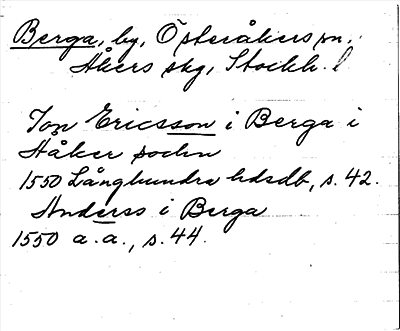 Berga, by, Österåkers sn.
Åkers skg, Stockh. l
Jon Ericsson i Berga i
Håker sochn
1550 Långhundra hdsdb, s. 42.
Anderss i Berga
1550 a.a., s. 44.